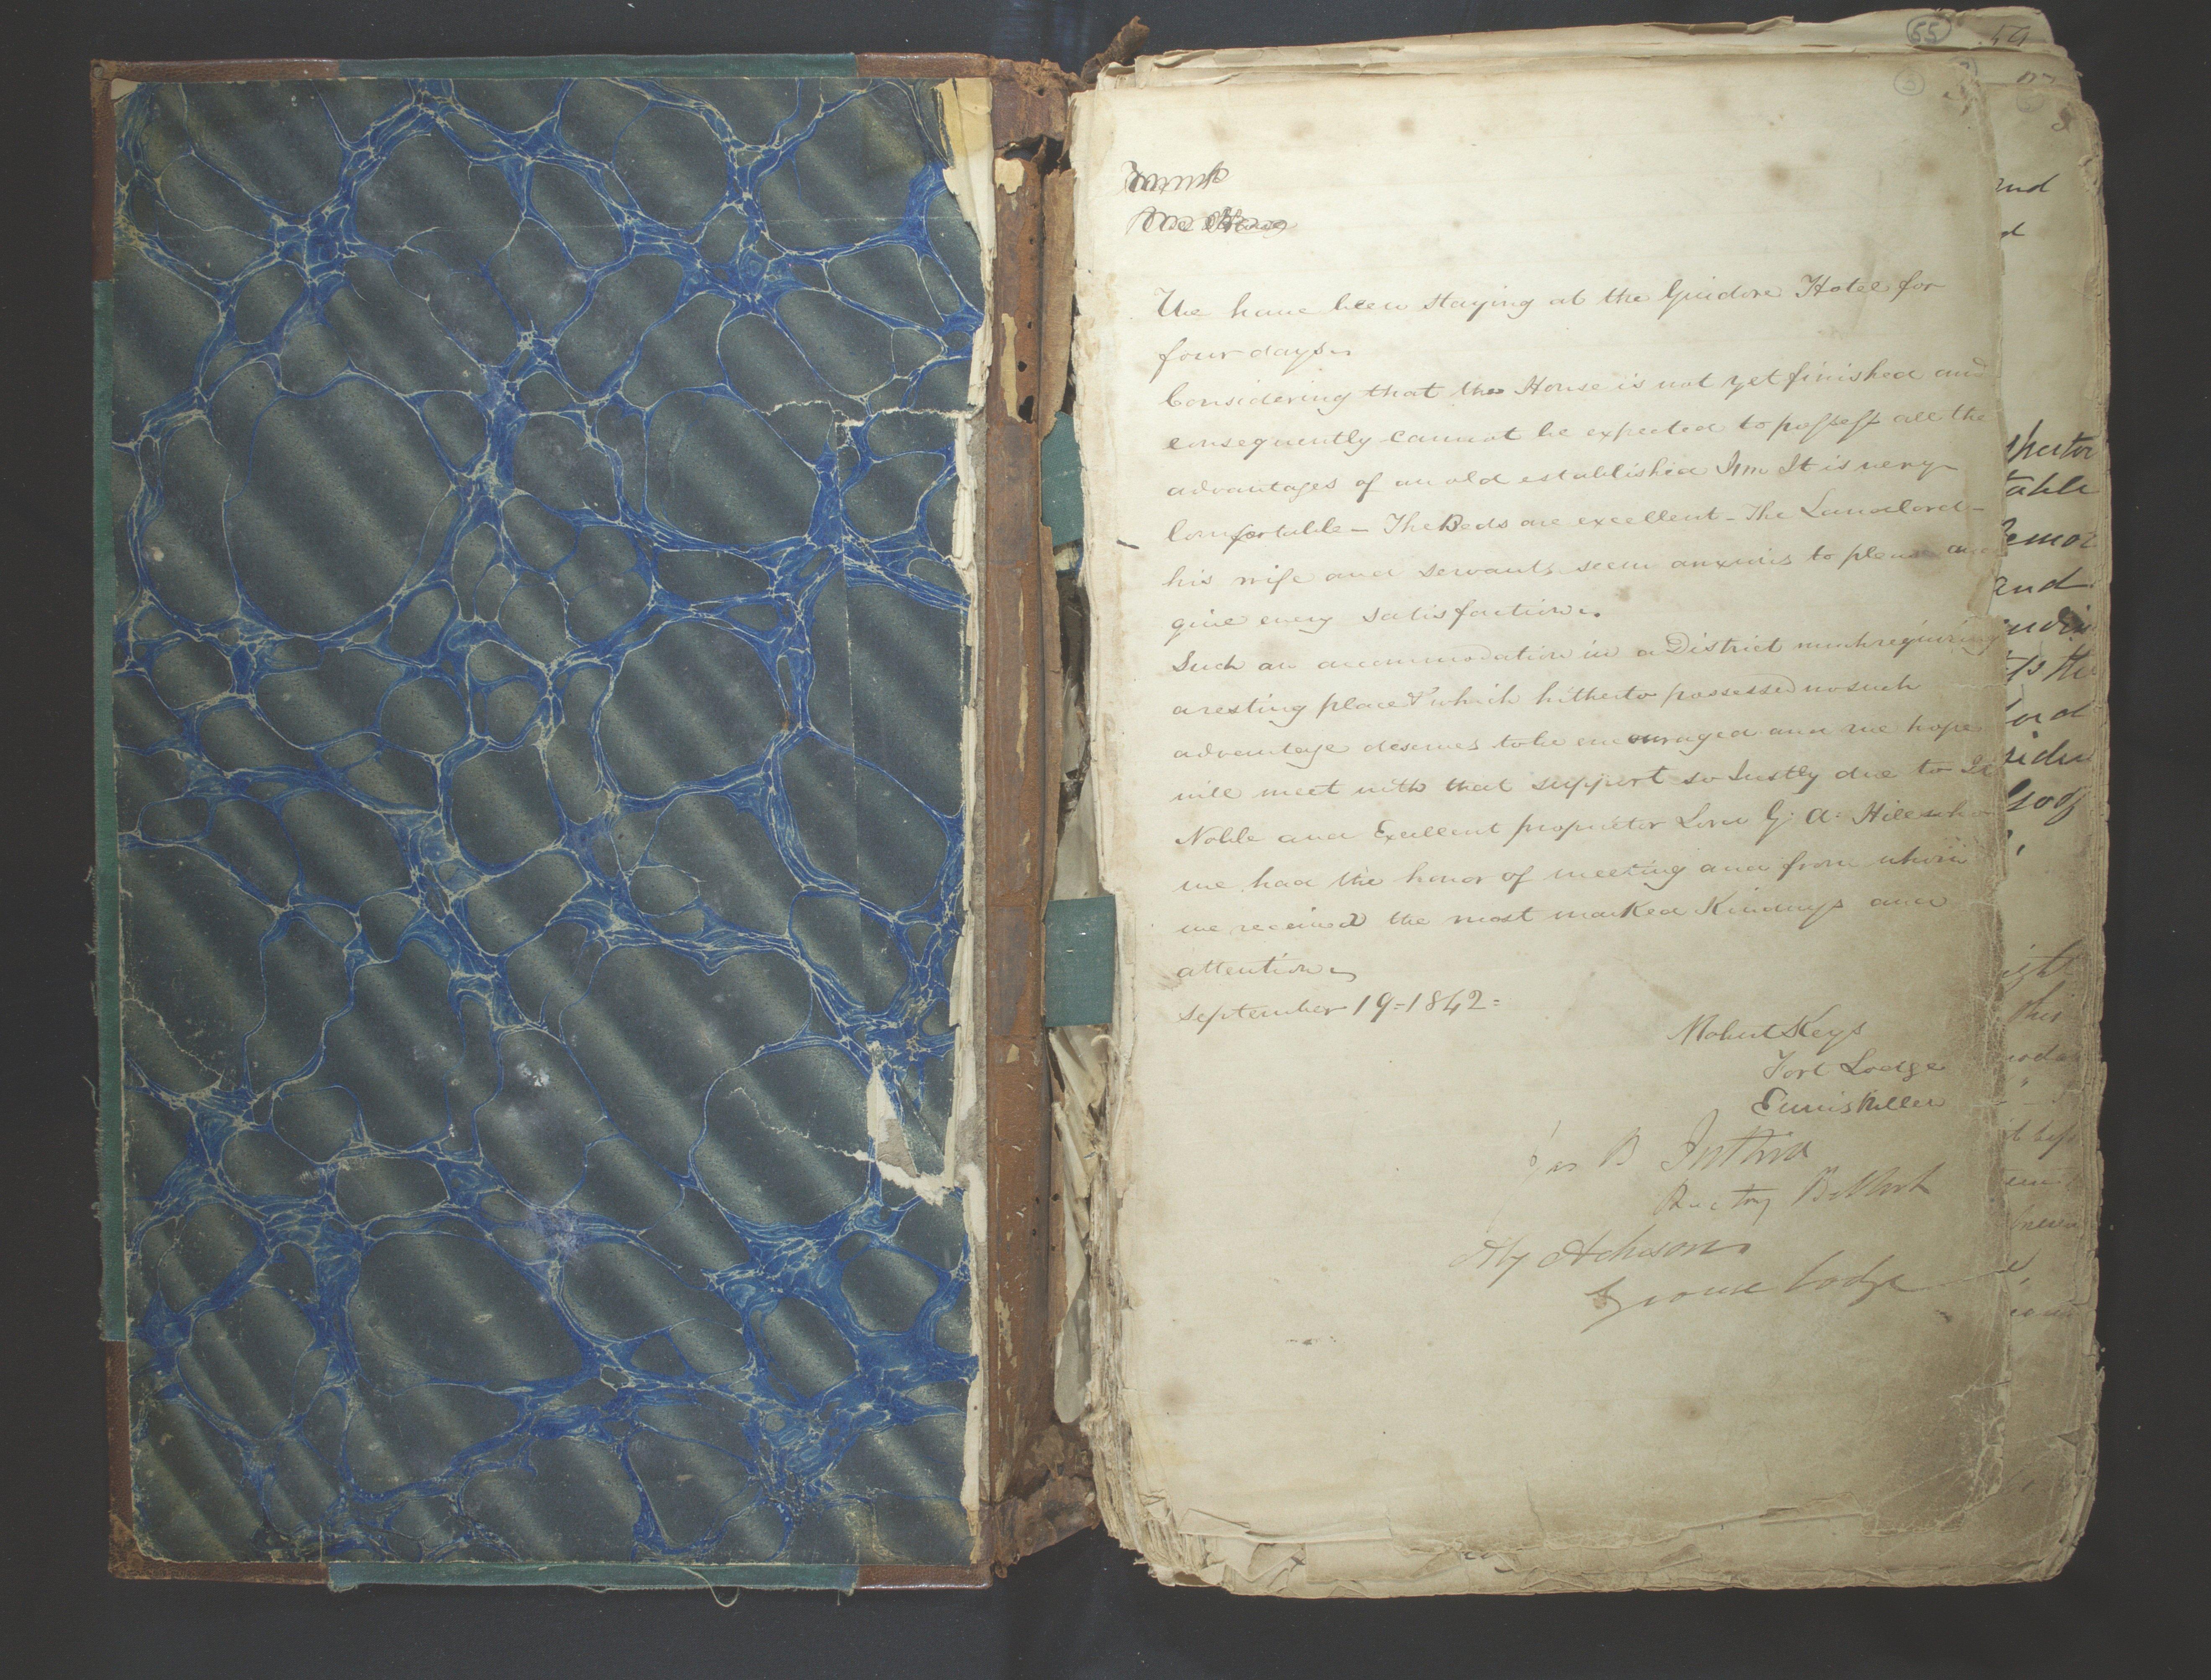 55
We have been staying at the Guidore Hotel for
four days
Considering that the House is not yet finished and
consequently cannot be expected to possess all the
advantages of an old established Inn It is very
Comfortable - The Beds are excellent - The Landlord -
his wife and servants seem anxious to please and
give every satisfaction.
Such an accommodation in a District much requiring
a resting place & which hitherto possessed no such
advantage deserves to be encouraged and we hope
will meet with that support so Justly due to Its
Noble and Excellent proprietor Lord G: A: Hill who
we had the honor of meeting and from whom
we received the most marked Kindness and
attention
September 19=1842=
Robert Keys
Fort Lodge
Enniskillen
Jas B
Rectory
Acheson
Grouse Lodge
and
and